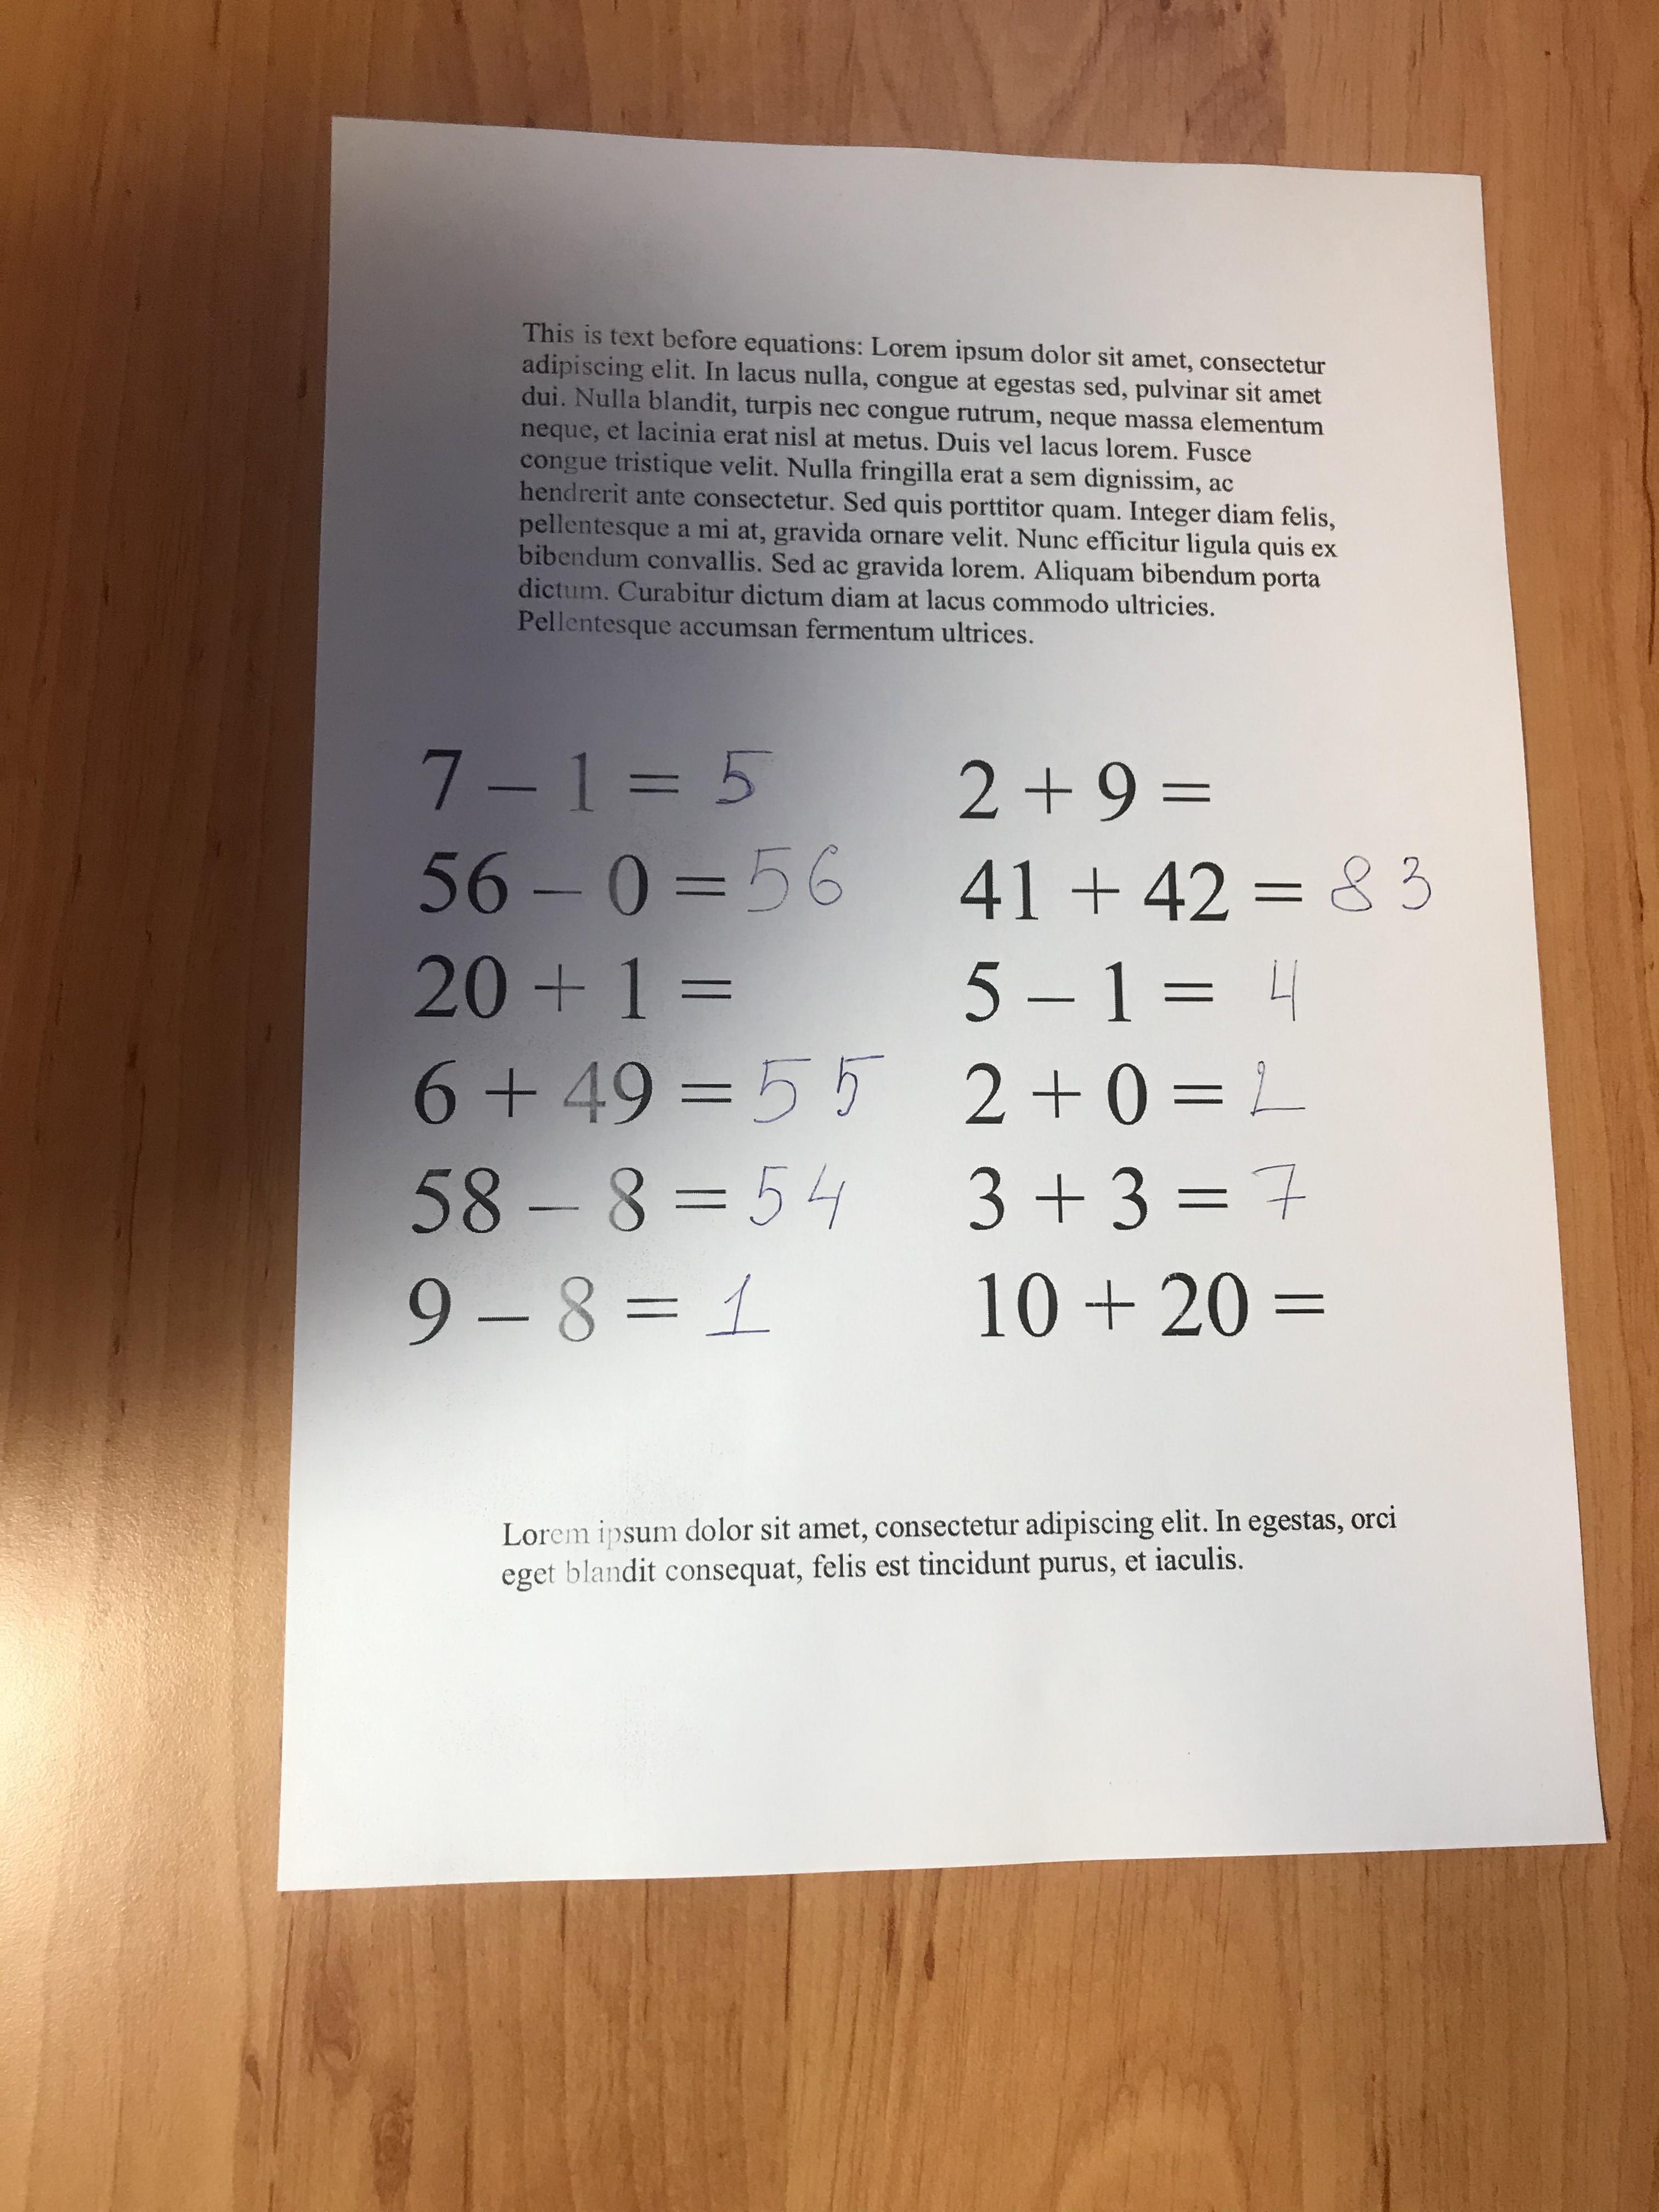 This is text before equations: Lorem ipsum dolor sit amet, consectetur
adipiscing elit. In lacus nulla, congue at egestas sed, pulvinar sit amet
dui. Nulla blandit, turpis nec congue rutrum, neque massa elementum
neque, et lacinia erat nisl at metus. Duis vel lacus lorem. Fusce
congue tristique velit. Nulla fringilla erat a sem dignissim, ac
hendrerit ante consectetur. Sed quis porttitor quam. Integer diam felis,
pellentesque a mi at, gravida ornare velit. Nunc efficitur ligula quis ex
bibendum convallis. Sed ac gravida lorem. Aliquam bibendum porta
dictum. Curabitur dictum diam at lacus commodo ultricies.
Pellentesque accumsan fermentum ultrices.
7 – 1 = 5
56 – 0 = 56
20 + 1 =
6 + 49 = 55
58 – 8 = 54
9 – 8 = 1
2 + 9 =
41 + 42 = 83
5 – 1 = 4
2 + 0 = 2
3 + 3 = 7
10 + 20 =
Lorem ipsum dolor sit amet, consectetur adipiscing elit. In egestas, orci
eget blandit consequat, felis est tincidunt purus, et iaculis.